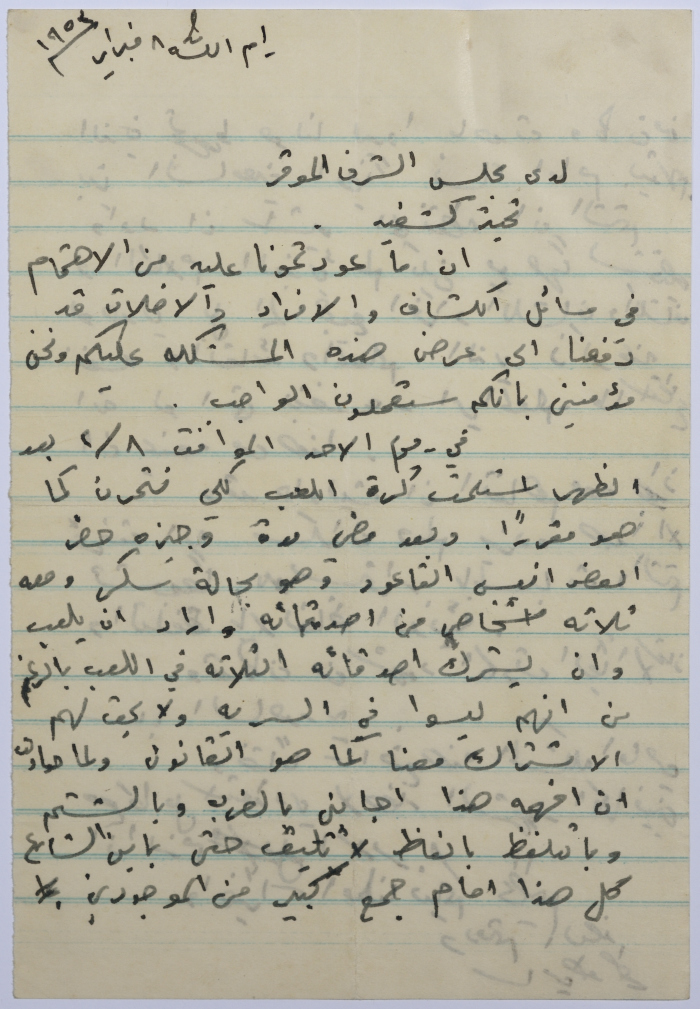 رام الله ٨ فبراير ١٩٥٣
لدى مجلس الشرف الموقر
تحية كشفية .
ان ما عودتمونا عليه من الاهتمام
في مسائل الكشاف والافراد والاخلاق قد
دفعنا الى عرض هذه المشكله عليكم ونحن
مؤمنين بانكم ستعملون الواجب .
في يوم الاحد الموافق ٢/٨ بعد
الظهر استلمت كرة اللعب لكي نتمرن كما
هو مقررًا. وبعد مضي مدة وجيزه حضر
العضو القاعود وهو بحالة سكر ومعه
ثلاثه اشخاص من اصدقائه واراد ان يلعب
وان يشترك اصدقائه الثلاثه في اللعب بالرغم
من انهم ليسوا في السريه ولا يحق لهم
الاشتراك معنا كما هو القانون ولما حاولت
ان افهمه هذا اجابني بالضرب وبالشتم
وبالتلفظ بالفاظ لا تليق حتى بابن الشارع
كل هذا امام جمع كبير من الموجودين